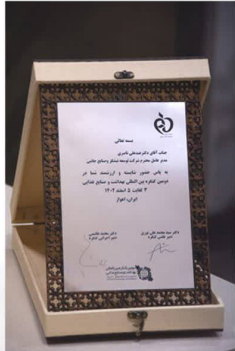 بسمه تعالی
جناب آقای دکتر عبدعلی ناصری
مدیر عامل محترم شرکت توسعه نیشکر وصنایع جانبی
به پاس حضور شایسته و ارزشمند شما در
دومین کنگره بین المللی بهداشت و صنایع غذایی
۳ لغایت ۵ اسفند ۱۴۰۲
ایران، اهواز
دکتر سید محمد علی نوری
دبیر علمی کنگره
دکتر محمد هاشمی
دبیر اجرایی کنگره